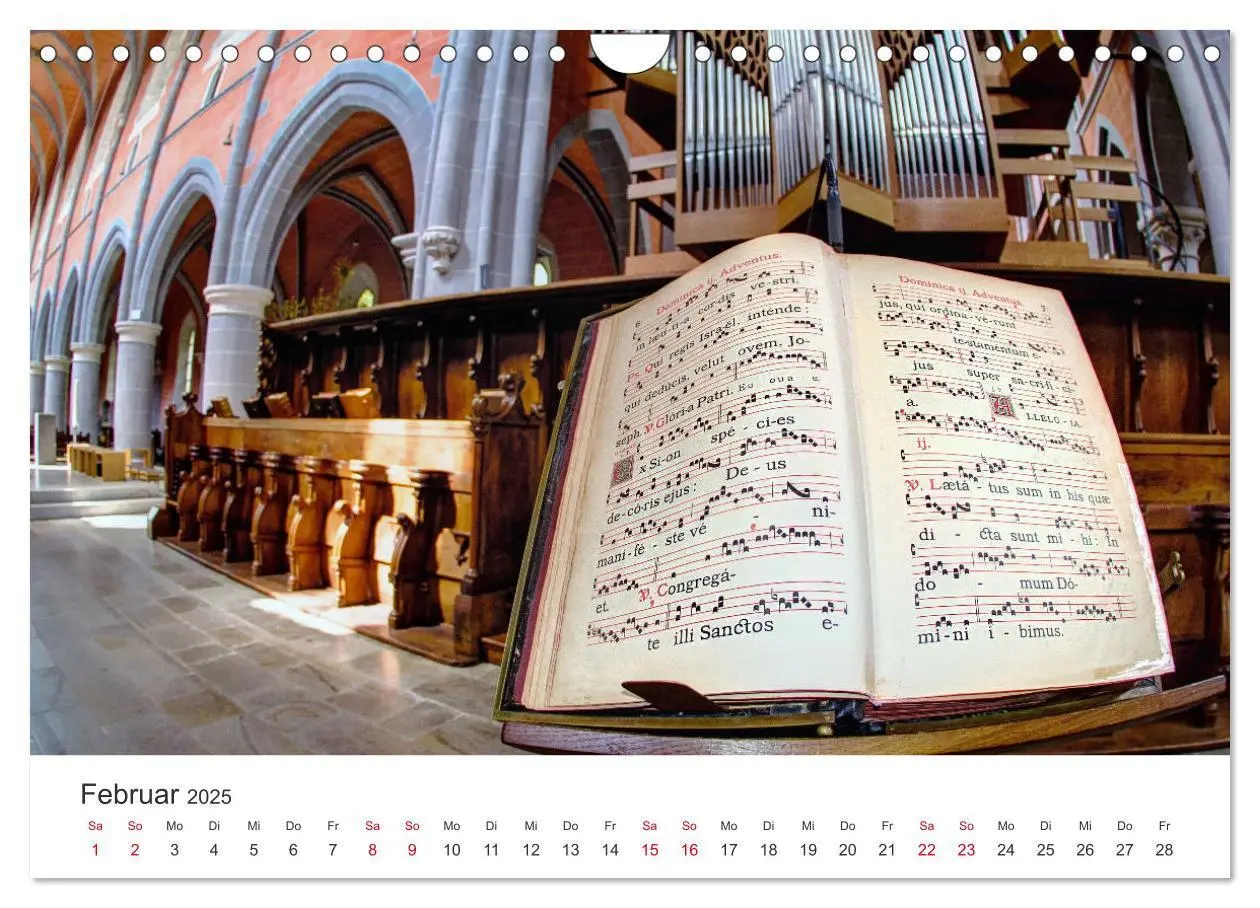 Dominica ij. Adventus.
6
in læti-ti-a cor-dis ve-stri.
Ps. Qui regis Israël, inténde:
qui dedúcis, velut ovem, Jo-
seph. ℣. Glóri-a Patri. E u o u a e.
Ex Si-on spé - ci-es
de-có-ris ejus: De - us
mani-fé - ste vé - ni-
et. ℣. Congregá-
te illi Sanctos e-
Dominica ij. Adventus. 7
jus, qui ordina-vé-runt
te-staméntum e-
jus super sa-cri-fí-ci-
a. ALLELÚ-IA.
ij.
℣. Lætá - tus sum in his quæ
di - cta sunt mi - hi: In
do - mum Dó-
mi-ni í - bimus.
Februar 2025
Sa So Mo Di Mi Do Fr Sa So Mo Di Mi Do Fr Sa So Mo Di Mi Do Fr Sa So Mo Di Mi Do Fr
1 2 3 4 5 6 7 8 9 10 11 12 13 14 15 16 17 18 19 20 21 22 23 24 25 26 27 28